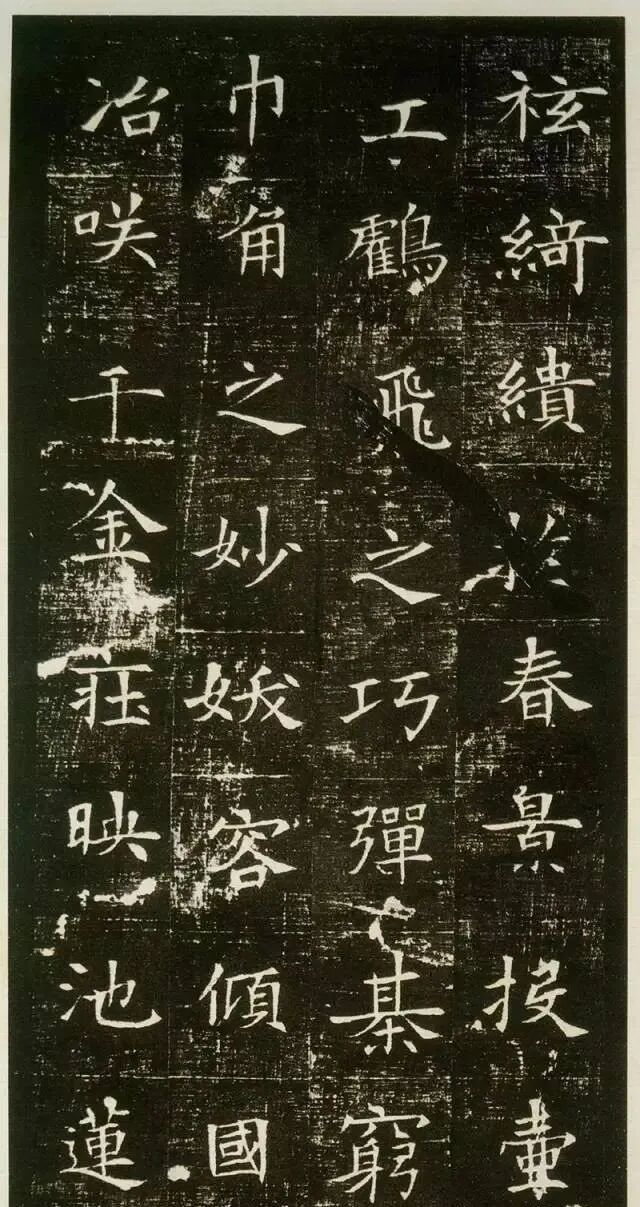 袨綺繢於春景投壺
工鶴飛之巧彈棊窮
巾角之妙娥容傾國
冶咲千金莊映池蓮